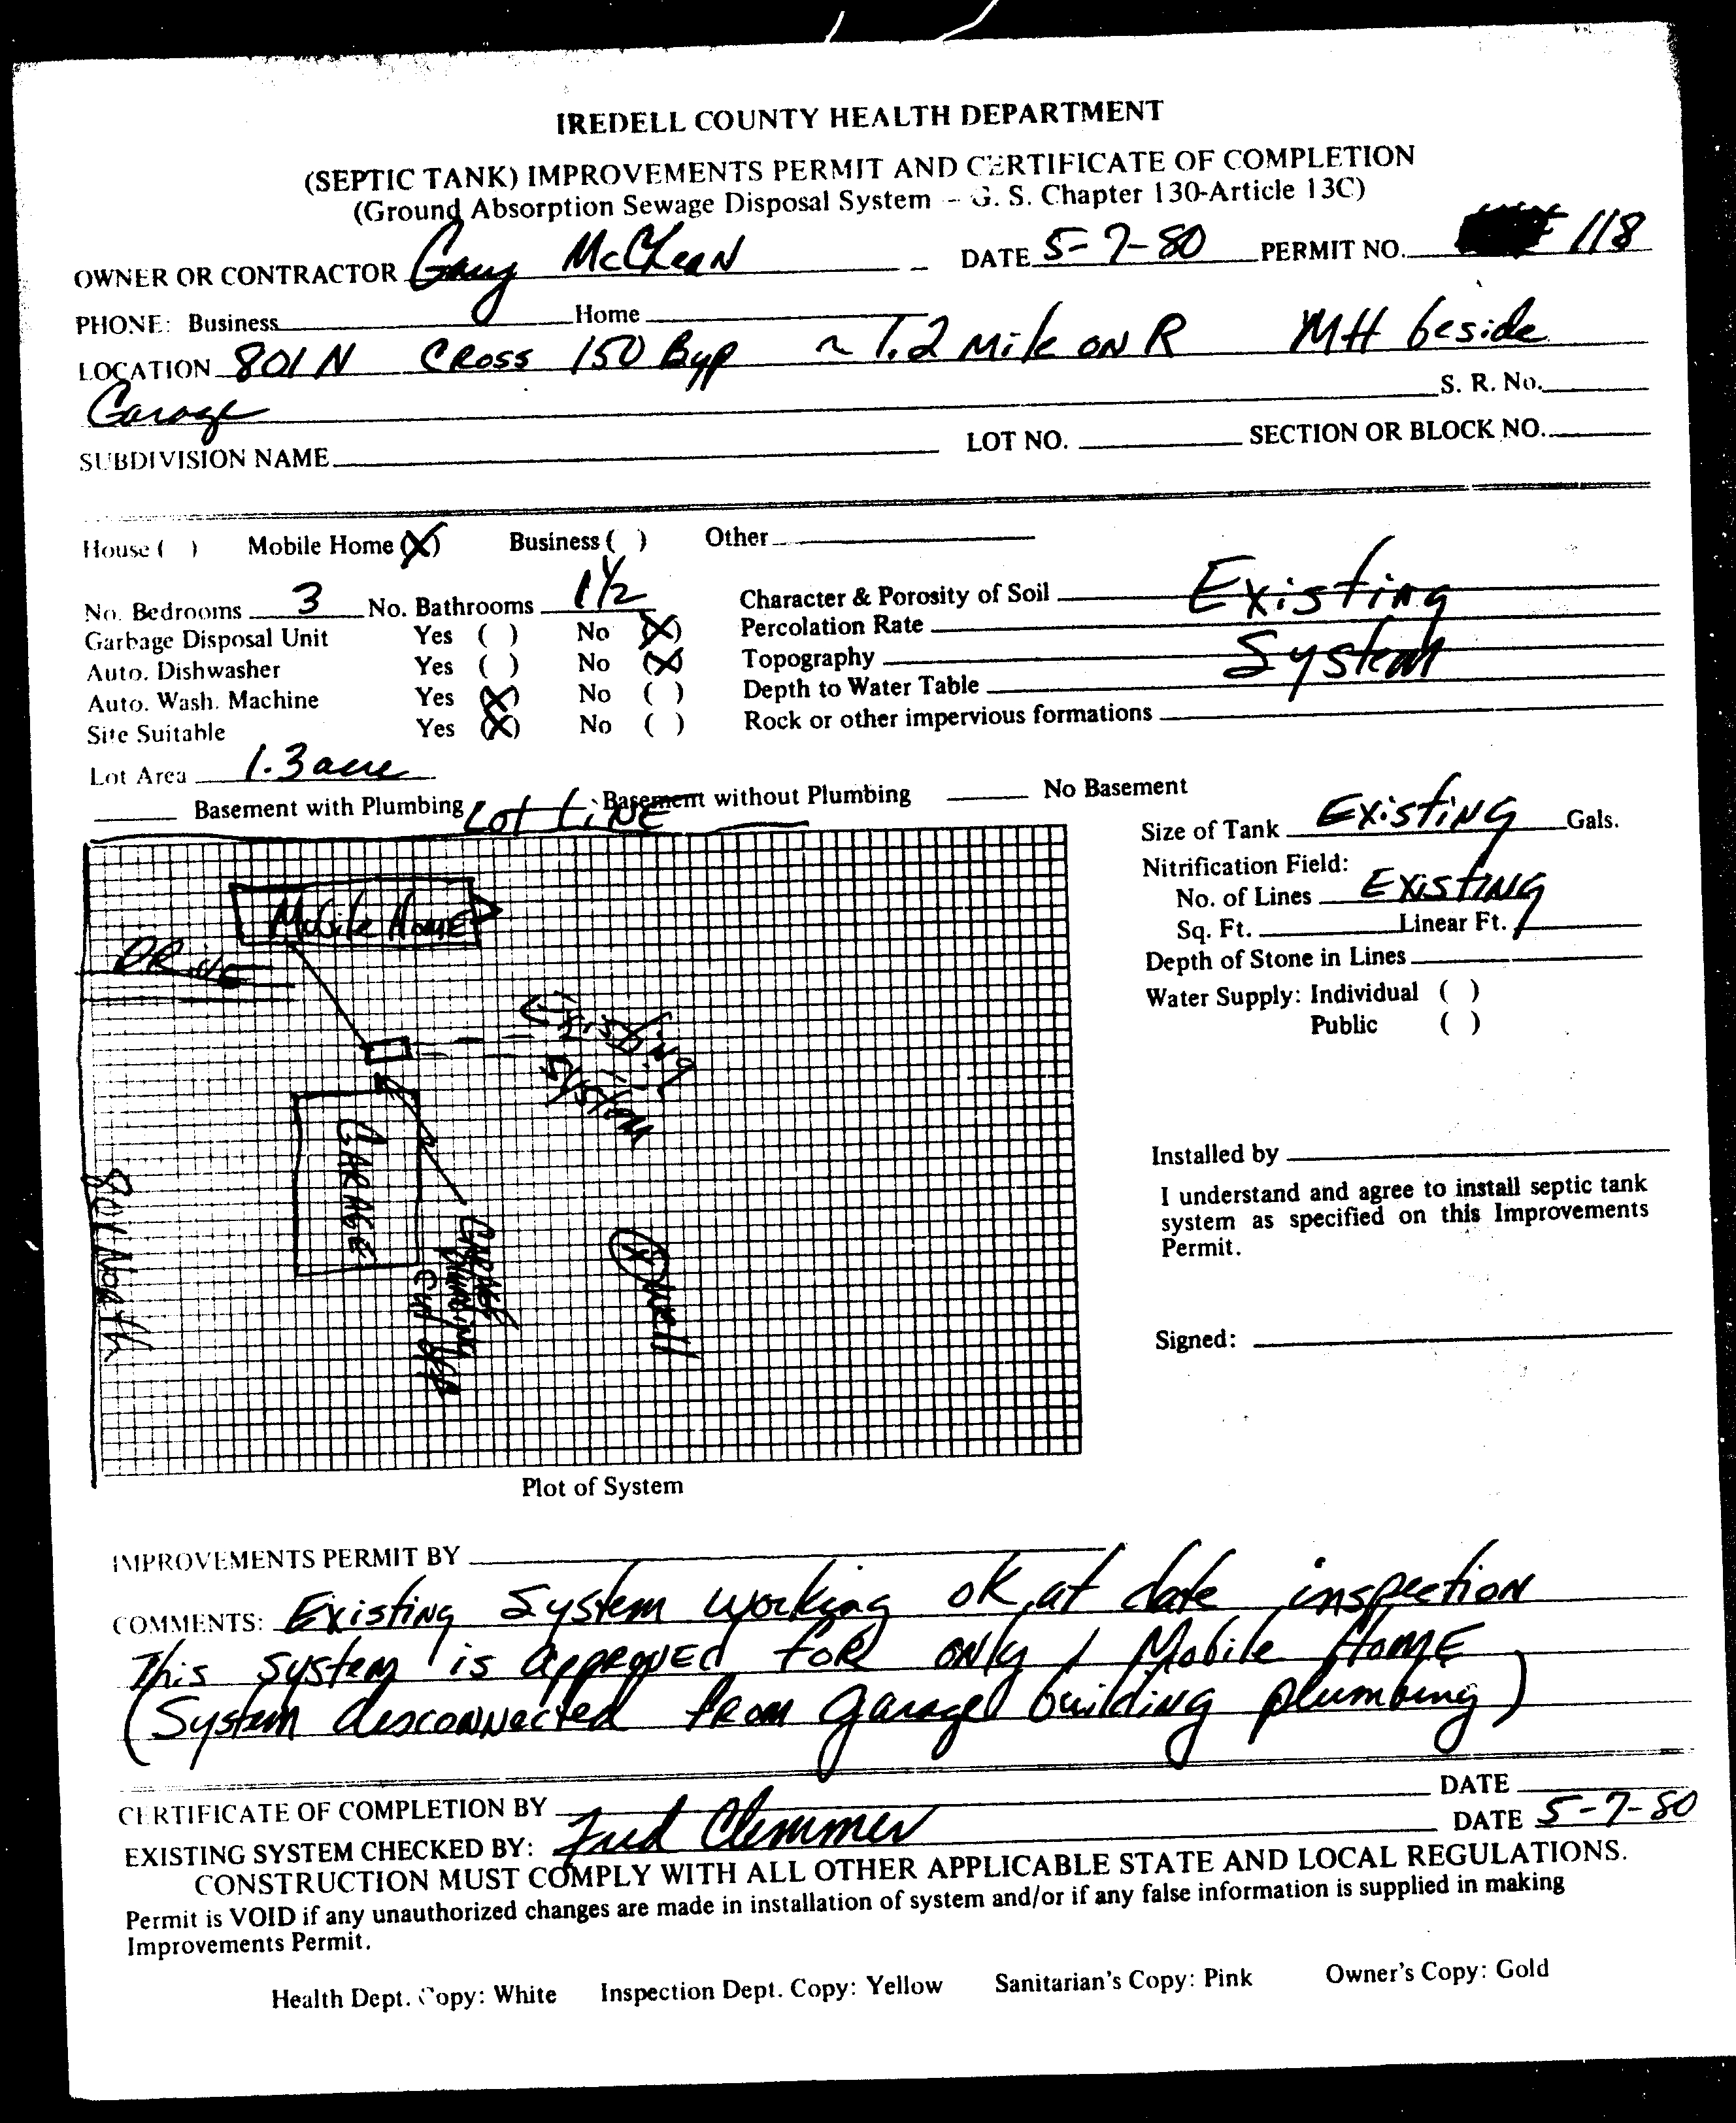 IREDELL COUNTY HEALTH DEPARTMENT
(SEPTIC TANK) IMPROVEMENTS PERMIT AND CERTIFICATE OF COMPLETION
(Ground Absorption Sewage Disposal System -- G. S. Chapter 130-Article 13C)
OWNER OR CONTRACTOR Gary McClean DATE 5-7-80 PERMIT NO. 118
PHONE: Business Home
LOCATION 801 N Cross 150 Byp ~ 1.2 Mile on R MH beside
Garage S. R. No.
SUBDIVISION NAME LOT NO. SECTION OR BLOCK NO.
House ( ) Mobile Home (X) Business ( ) Other
No. Bedrooms 3 No. Bathrooms 1 1/2 Character & Porosity of Soil Existing
Garbage Disposal Unit Yes ( ) No (X) Percolation Rate
Auto. Dishwasher Yes ( ) No (X) Topography System
Auto. Wash. Machine Yes (X) No ( ) Depth to Water Table
Site Suitable Yes (X) No ( ) Rock or other impervious formations
Lot Area 1.3 acre
Basement with Plumbing Basement without Plumbing No Basement
Lot Line
Size of Tank Existing Gals.
Nitrification Field:
No. of Lines Existing
Sq. Ft. Linear Ft.
Depth of Stone in Lines
Water Supply: Individual ( )
Public ( )
Mobile Home
Drive
Existing
System
GARAGE
GARAGE
Plumbing
Cut off
X Well
801 North
Installed by
I understand and agree to install septic tank
system as specified on this Improvements
Permit.
Signed:
Plot of System
IMPROVEMENTS PERMIT BY
COMMENTS: Existing System working ok at date inspection
This system is approved for only 1 Mobile Home
(System disconnected from garage building plumbing)
CERTIFICATE OF COMPLETION BY DATE
EXISTING SYSTEM CHECKED BY: Fred Clemmer DATE 5-7-80
CONSTRUCTION MUST COMPLY WITH ALL OTHER APPLICABLE STATE AND LOCAL REGULATIONS.
Permit is VOID if any unauthorized changes are made in installation of system and/or if any false information is supplied in making
Improvements Permit.
Health Dept. Copy: White Inspection Dept. Copy: Yellow Sanitarian's Copy: Pink Owner's Copy: Gold